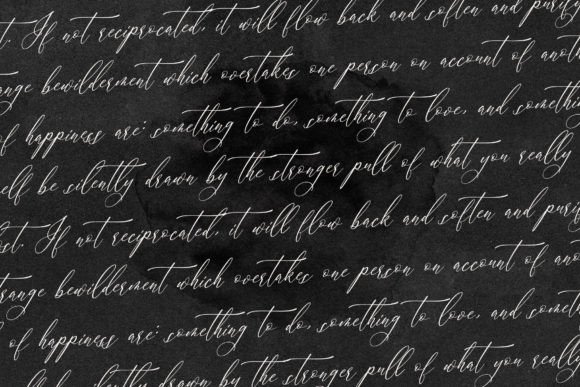 st. If not reciprocated, it will flow back and soften and purify
range bewilderment which overtakes one person on account of anot
of happiness are: something to do, something to love, and someth
elf be silently drawn by the stronger pull of what you really
ost. If not reciprocated, it will flow back and soften and puri
trange bewilderment which overtakes one person on account of anot
l of happiness are: something to do, something to love, and some
be silently drawn by the stronger pull of what you really